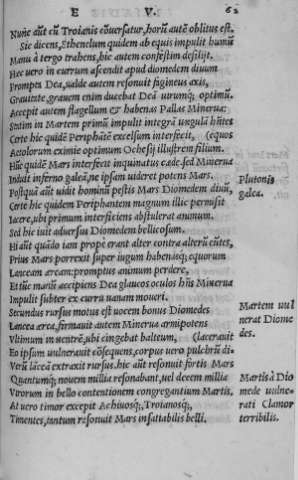 E V. 62
Nunc aūt cū Troianis cōuersatur, horū autē oblitus est.
Sic dicens, Sthenelum quidem ab equis impulit humū
Manu à tergo trahens, hic autem confestim desilijt.
Hec uero in currum ascendit apud diomedem diuum
Prompta Dea, ualde autem resonuit faginus axis,
Grauitate, grauem enim ducebat Deā uirumq; optimū.
Accepit autem flagellum & habenas Pallas Minerua:
Statim in Martem primū impulit integrā ungulā hñtes
Certe hic quidē Periphātē excelsum interfecit, (equos
Aetolorum eximie optimum Ochesij illustrem filium.
Hūc quidē Mars interfecit inquinatus cæde. sed Minerua
Induit inferno galeā, ne ipsam uideret potens Mars.
Plutonis
galea.
Postquā aūt uidit hominū pestis Mars Diomedem diuū,
Certe hic quidem Periphantem magnum illic permisit
Iacere, ubi primum interficiens abstulerat animum.
Sed hic iuit aduersus Diomedem bellicosum.
Hi aūt quādo iam propè erant alter contra alterū eūtes,
Prius Mars porrexit super iugum habenasq; equorum
Lanceam æream: promptus animum perdere,
Et hāc manu accipiens Dea glaucos oculos hñs Minerua
Impulit subter ex curru uanam moueri.
Secundus rursus motus est uocem bonus Diomedes
Lancea ærea, firmauit autem Minerua armipotens
Martem uul
nerat Diome
des.
Vltimum in uentrē, ubi cingebat balteum, (lacerauit
Eo ipsum uulnerauit cōsequens, corpus uero pulchrū di-
Verū lāceā extraxit rursus, hic aūt resonuit fortis Mars
Quantumq; nouem millia resonabant, uel decem millia
Martis à Dio
mede uulne-
rati Clamor
terribilis.
Virorum in bello contentionem congregantium Martis,
At uero timor excepit Achiuosq;, Troianosq;,
Timentes, tantum resonuit Mars insatiabilis belli.